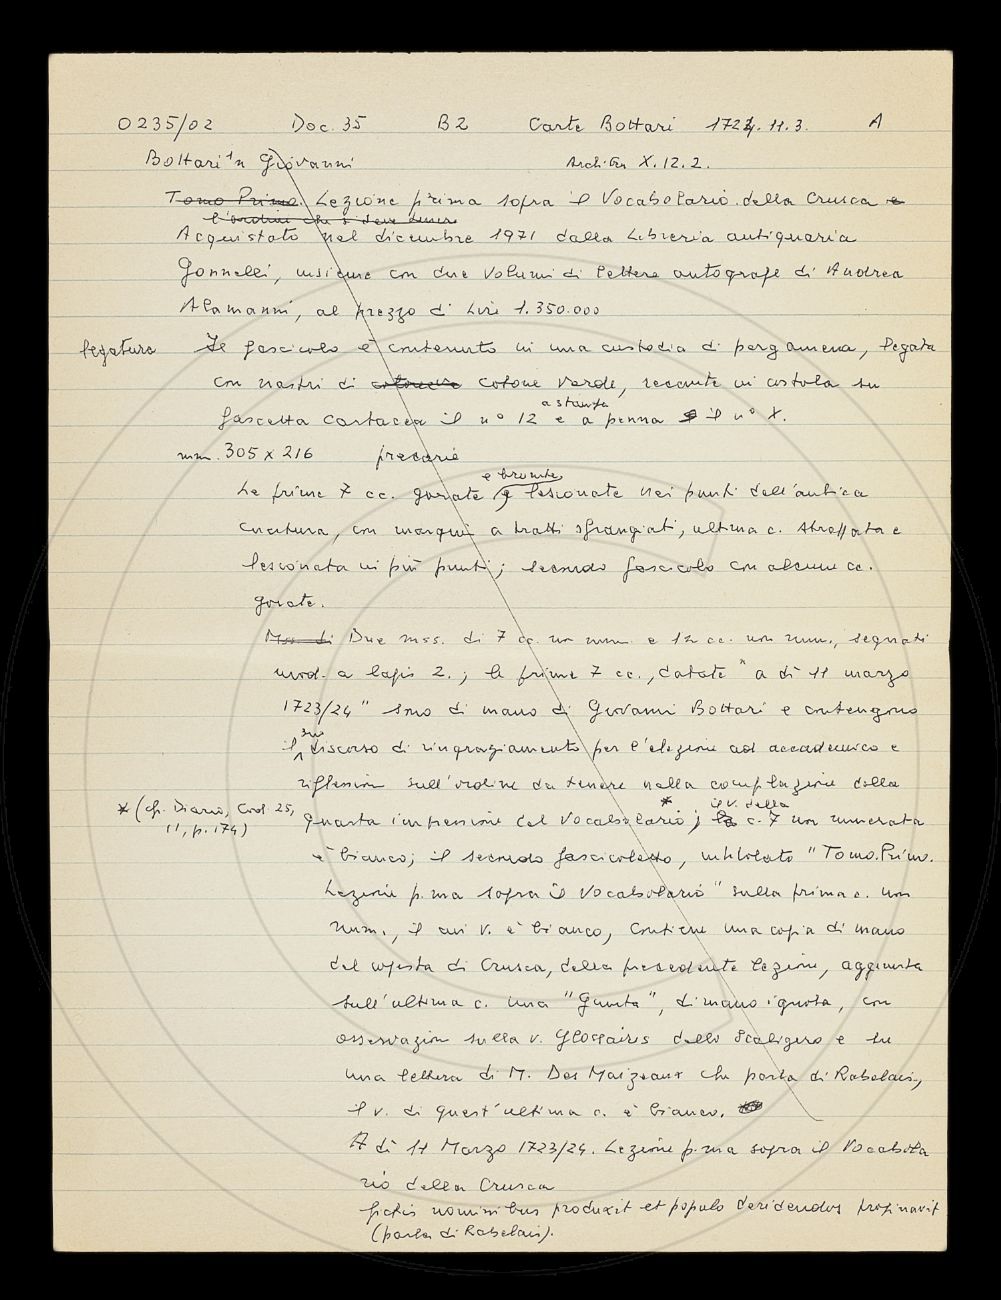 0235/02 Doc. 35 B2 Carte Bottari 1724.11.3. A
Bottari Giovanni Archiv X.12.2.
Tomo Primo. Lezione prima sopra il Vocabolario della Crusca e
l'ordine che si deve tenere
Acquistato nel dicembre 1971 dalla Libreria antiquaria
Gonnelli, insieme con due volumi di lettere autografe di Andrea
Alamanni, al prezzo di Lire 1.350.000
legatura Il fascicolo è contenuto in una custodia di pergamena, legata
con nastri di cotone verde, recante in costola su
a stampa
fascetta cartacea il n° 12 e a penna il n° X.
mm. 305 x 216 precario
e brunite
Le prime 7 cc. gorate e lesionate nei punti dell'antica
cucitura, con margini a tratti sfrangiati, ultima c. strappata e
lesionata in più punti; secondo fascicolo con alcune cc.
gorate.
Mss. di Due mss. di 7 cc. non num. e 12 cc. non num., segnati
mod. a lapis 2.; le prime 7 cc., datate "a dì 11 marzo
1723/24" sono di mano di Giovanni Bottari e contengono
suo
il discorso di ringraziamento per l'elezione ad accademico e
riflessioni sull'ordine da tenere nella compilazione della
* (cfr. Diario, Cod. 25,
II, p. 174)
* il v. della
quarta impressione del Vocabolario; la c. 7 non numerata
è bianco; il secondo fascicoletto, intitolato "Tomo Primo.
Lezione p.ma sopra il Vocabolario" sulla prima c. non
num., il cui v. è bianco, contiene una copia di mano
del copista di Crusca, della precedente lezione, aggiunta
sull'ultima c. una "Giunta", di mano ignota, con
osservazioni sulla v. Glossaires dello Scaligero e su
una lettera di M. Des Maizeaux che parla di Rabelais,
il v. di quest'ultima c. è bianco.
A dì 11 Marzo 1723/24. Lezione p.ma sopra il Vocabola
rio della Crusca
fictis nominibus produxit et populo deridendos propinavit
(parla di Rabelais).